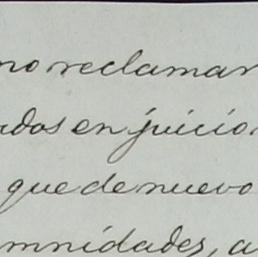 no reclamar
ados en juicio
que de nuevo
mnidades, a